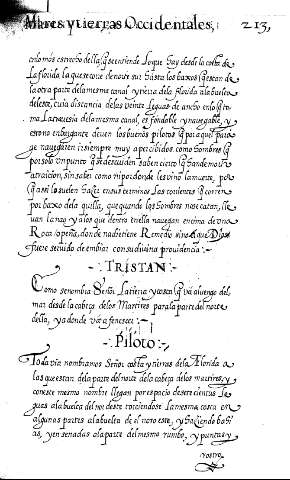 Mares y tierras Occidentales, 213,
en lo mas estrecho della q̃ se entiende lo que hay desde la costa de
la florida la que se corre de norte sur hasta los baxos q̃ estan de
la otra parte del a mesma canal y tierra de la florida a la buelta
del este, cuia distancia de las veinte leguas de ancho en lo q̃ to
ma la travesia del a mesma canal, es fondable y navegable, y
estono enbargante deven los buenos pilotos q̃ por aquel para
ge navegaren ir siempre muy apercibidos como hombres q̃
por solo un punto q̃ se descuiden saben cierto q̃ han de morir
a traicion, sin saber como ni por donde les vino la muerte, por
q̃ a si lo suelen hazer en sus terminos las corrientes q̃ corren
por baxo de la quilla, que quando los hombres no se catan, lle
van la nao y a los que dentro en ella navegan encima de una
Roca o peña, donde nadie tiene Remedio sino el que Dios
fuere servido de embiar con su divina providencia
TRISTAN
Como se nombra Señor la tierra y costa q̃ va a luengo del
mar desde la cabeça de los Martires para la parte del norte
della, y a donde va a fenescer
Piloto
Toda via nombramos Señor costa y tierras de la Florida a
las que estan de la parte del norte de la cabeça de los martires, y
con este mesmo nombre llegan por espacio de setecientas le
guas a la buelta del noreste torciendose la mesma costa en
algunas partes a la buelta de el noroeste, y haziendo bahi
as, y ensenadas a la parte del mesmo rumbo, y puntas y
rostro